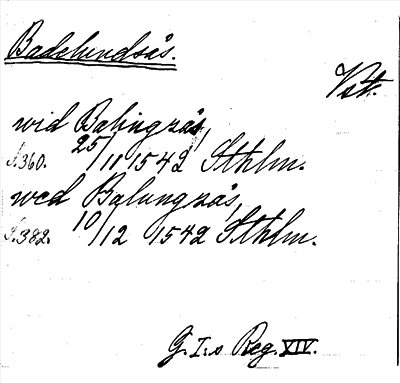 Badelundsås.
Vst.
wid Balingzås,
s. 360. 25/11 1542 Sthlm.
wed Balungzås,
s. 382. 10/12 1542 Sthlm.
G. I:s Reg. XIV.